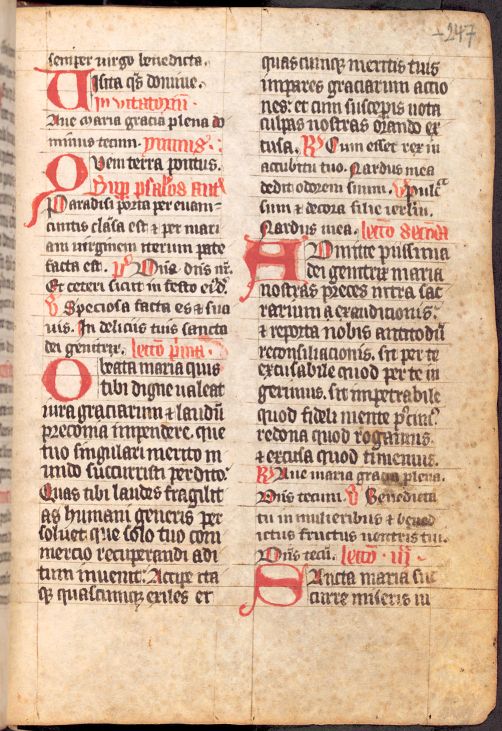 +247
semper virgo benedicta.
Uisita q̄s domine.
Invitatoriū.
Ave maria gracia plena do
minus tecum.
Quem terra pontus.
Sup̄ psalōs ant̄
Paradisi porta per euam
cunctis clāsa est et per mari
am virginem iterum pate
facta est. p̄s Dn̄s dn̄s nr̄.
Et ceteri sicut in festo ei9d̄.
v Speciosa facta es et sua
vis. In deliciis tuis sancta
dei genitrix. lectō p̄ma.
O beata maria quis
tibi digne valeat
iura graciarum et laudū
preconia impendere. que
tuo singulari merito m
undo succurristi perdito.
Quas tibi laudes fragilit
as humani generis per
soluet que solo tuo com
mercio recuperandi adi
tum inuenit. Accipe ita
qȝ quascumqȝ exiles et
quascumqȝ meritis tuis
impares graciarum actio
nes: et cum susceperis uota
culpas nostras orando ex
cusa. R Cum esset rex in
accubitu suo. Nardus mea
dedit odorem suum. v Pulc̄
sium et decora filie ierlm̄.
Nardus mea. lectō secūda
Admitte piissima
dei genitrix maria
nostras preces intra sac
rarium exaudicionis:
et reporta nobis antitodū
reconsiliacionis. sit per te
excusabile quod per te in
gerimus. fit impetrabile
quod fideli mente pōcim9.
redona quod rogamus.
et excusa quod timemus.
R Aue maria gracia plena.
Dn̄s tecum. v Benedicta
tu in mulieribus et bened
ictus fructus uentris tui.
Dn̄s tecū. lectō iii
Sancta maria suc
curre miseris iu